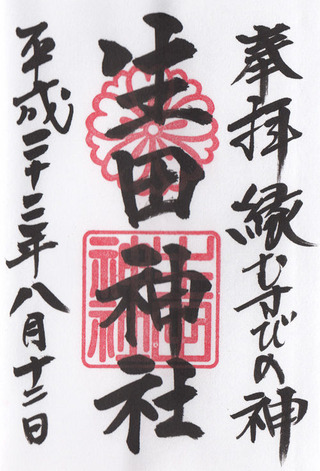 奉拝 縁むすびの神
生田神社
平成二十二年八月十二日